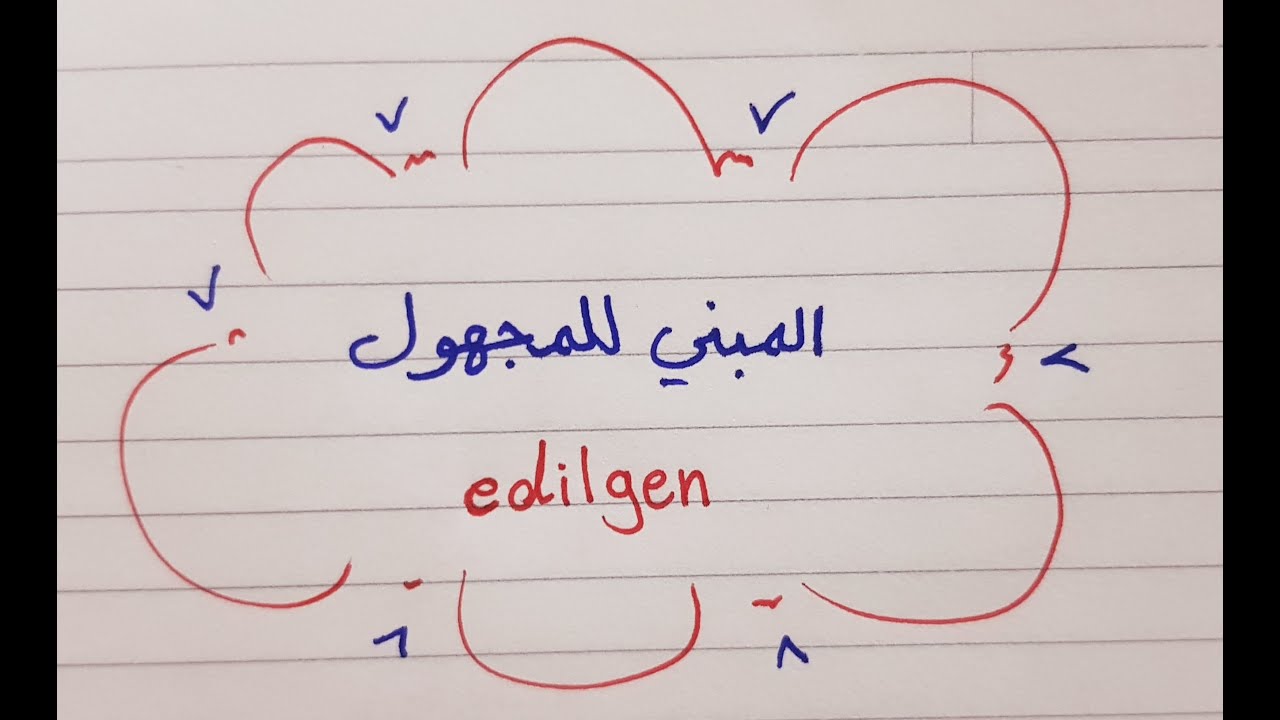 المبني للمجهول
edilgen